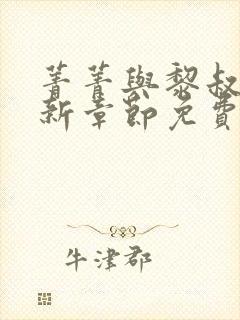 菁菁與黎叔
新章節免費
牛津郡